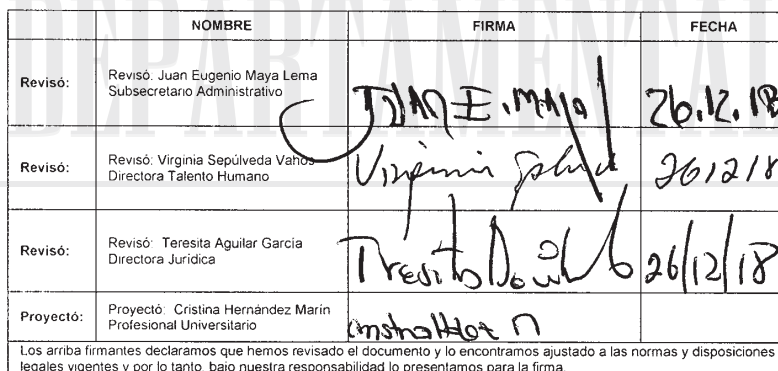 DEPARTAMENTAL
NOMBRE FIRMA FECHA
Revisó: Revisó: Juan Eugenio Maya Lema
Subsecretario Administrativo
JUAN E. MAYA 26.12.18
Revisó: Revisó: Virginia Sepúlveda Vahos
Directora Talento Humano
Virginia 261218
Revisó: Revisó: Teresita Aguilar García
Directora Jurídica
Teresita 26/12/18
Proyectó: Proyectó: Cristina Hernández Marín
Profesional Universitario
Los arriba firmantes declaramos que hemos revisado el documento y lo encontramos ajustado a las normas y disposiciones
legales vigentes y por lo tanto, bajo nuestra responsabilidad lo presentamos para la firma.